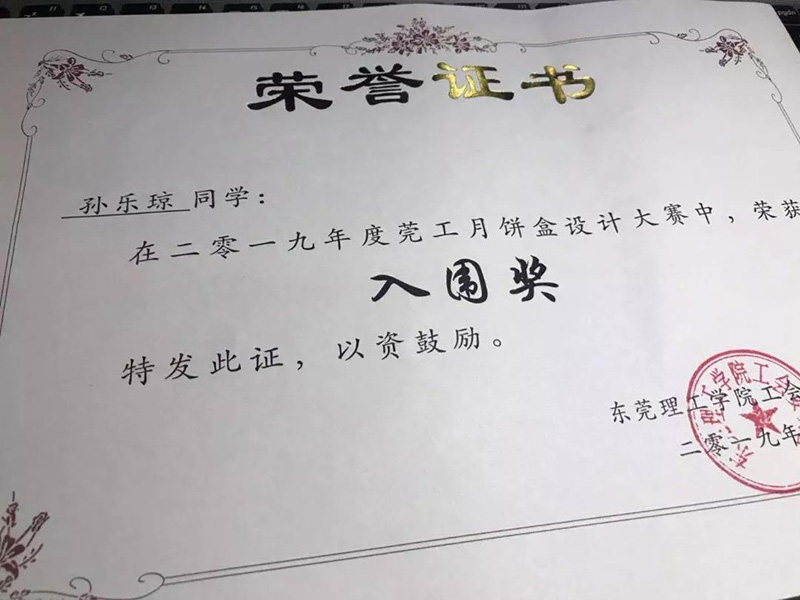 荣誉证书
孙乐琼同学：
在二零一九年度莞工月饼盒设计大赛中，荣获
入围奖
特发此证，以资鼓励。
东莞理工学院工会
二零一九年